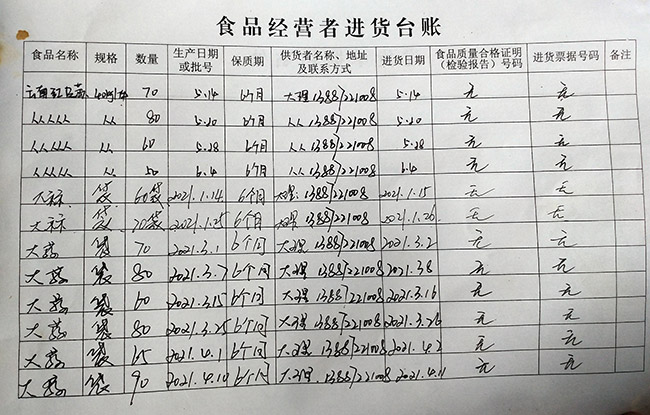 食品经营者进货台账
食品名称 规格 数量 生产日期或批号 保质期 供货者名称、地址及联系方式 进货日期 食品质量合格证明(检验报告)号码 进货票据号码 备注
70 5.14 6个月 大理 1388/221008 5.14 无 无
从从从 从 80 5.20 6个月 从 1388/221008 5.20 无 无
从从从 从 60 5.28 6个月 从 1388/221008 5.28 无 无
从从从 从 50 6.4 6个月 从 1388/221008 6.4 无 无
袋 60袋 2021.1.14 6个月 大理 1388/221008 2021.1.15 无 无
袋 70袋 2021.1.25 6个月 大理 1388/221008 2021.1.26 无 无
袋 70 2021.3.1 6个月 大理 1388/221008 2021.3.2 无 无
袋 80 2021.3.7 6个月 大理 1388/221008 2021.3.8 无 无
袋 60 2021.3.15 6个月 大理 1388/221008 2021.3.16 无 无
袋 80 2021.3.25 6个月 大理 1388/221008 2021.3.26 无 无
袋 65 2021.4.1 6个月 大理 1388/221008 2021.4.2 无 无
袋 90 2021.4.10 6个月 大理 1388/221008 2021.4.11 无 无